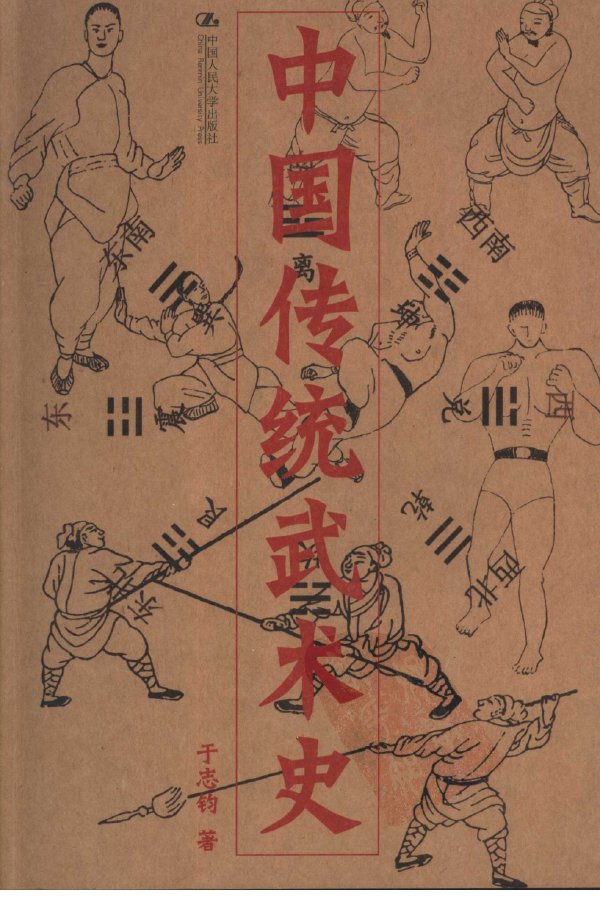 中国人民大学出版社
China Renmin University Press
中国传统武术史
于志钧 著
东南
巽
离
西南
坤
东
震
兑
西
乾
西北
艮
东